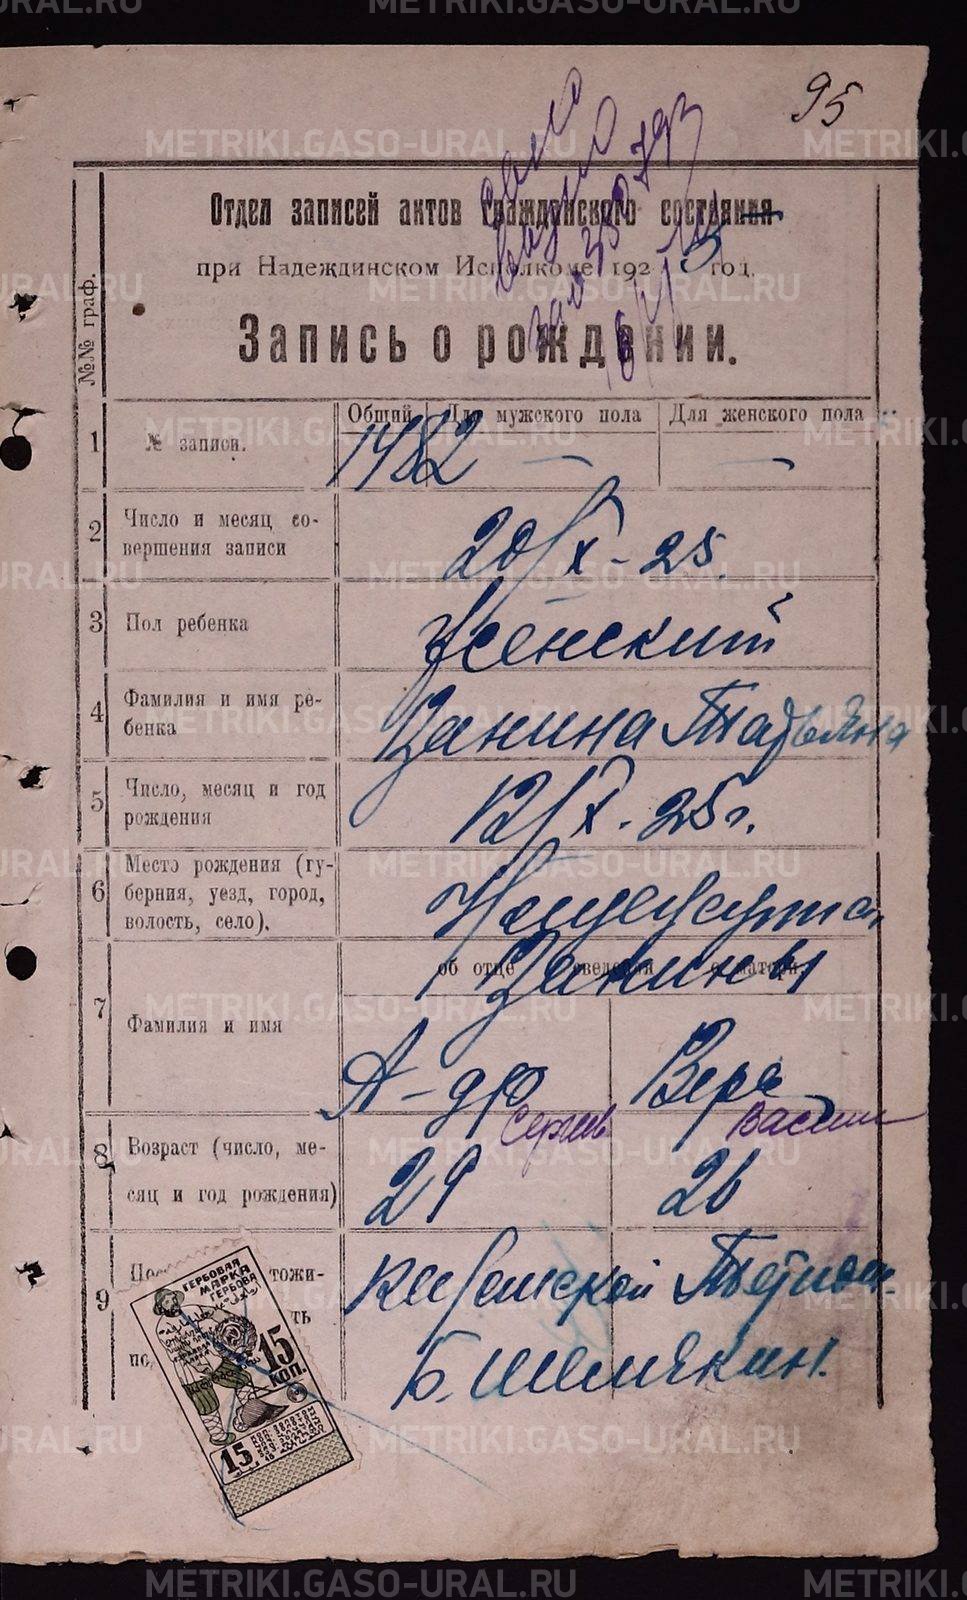 95
Отдел записей актов гражданского состояния
при Надеждинском Исполкоме 1925 год.
Запись о рождении.
№№ граф.
Общий Для мужского пола Для женского пола
1 № записи. 1482 — —
2 Число и месяц со-
вершения записи
20/X - 25.
3 Пол ребенка Женский
4 Фамилия и имя ре-
бенка
Занина Татьяна
5 Число, месяц и год
рождения
12/X. 25 г.
6 Место рождения (гу-
берния, уезд, город,
волость, село).
об отце сведения о матери
Занины
7 Фамилия и имя
А-др Вера
Сергеев Васил
8 Возраст (число, ме-
сяц и год рождения)
29 26
9
Б. Шемякин.
ГЕРБОВАЯ
МАРКА
15
КОП.
15
METRIKI.GASO-URAL.RU